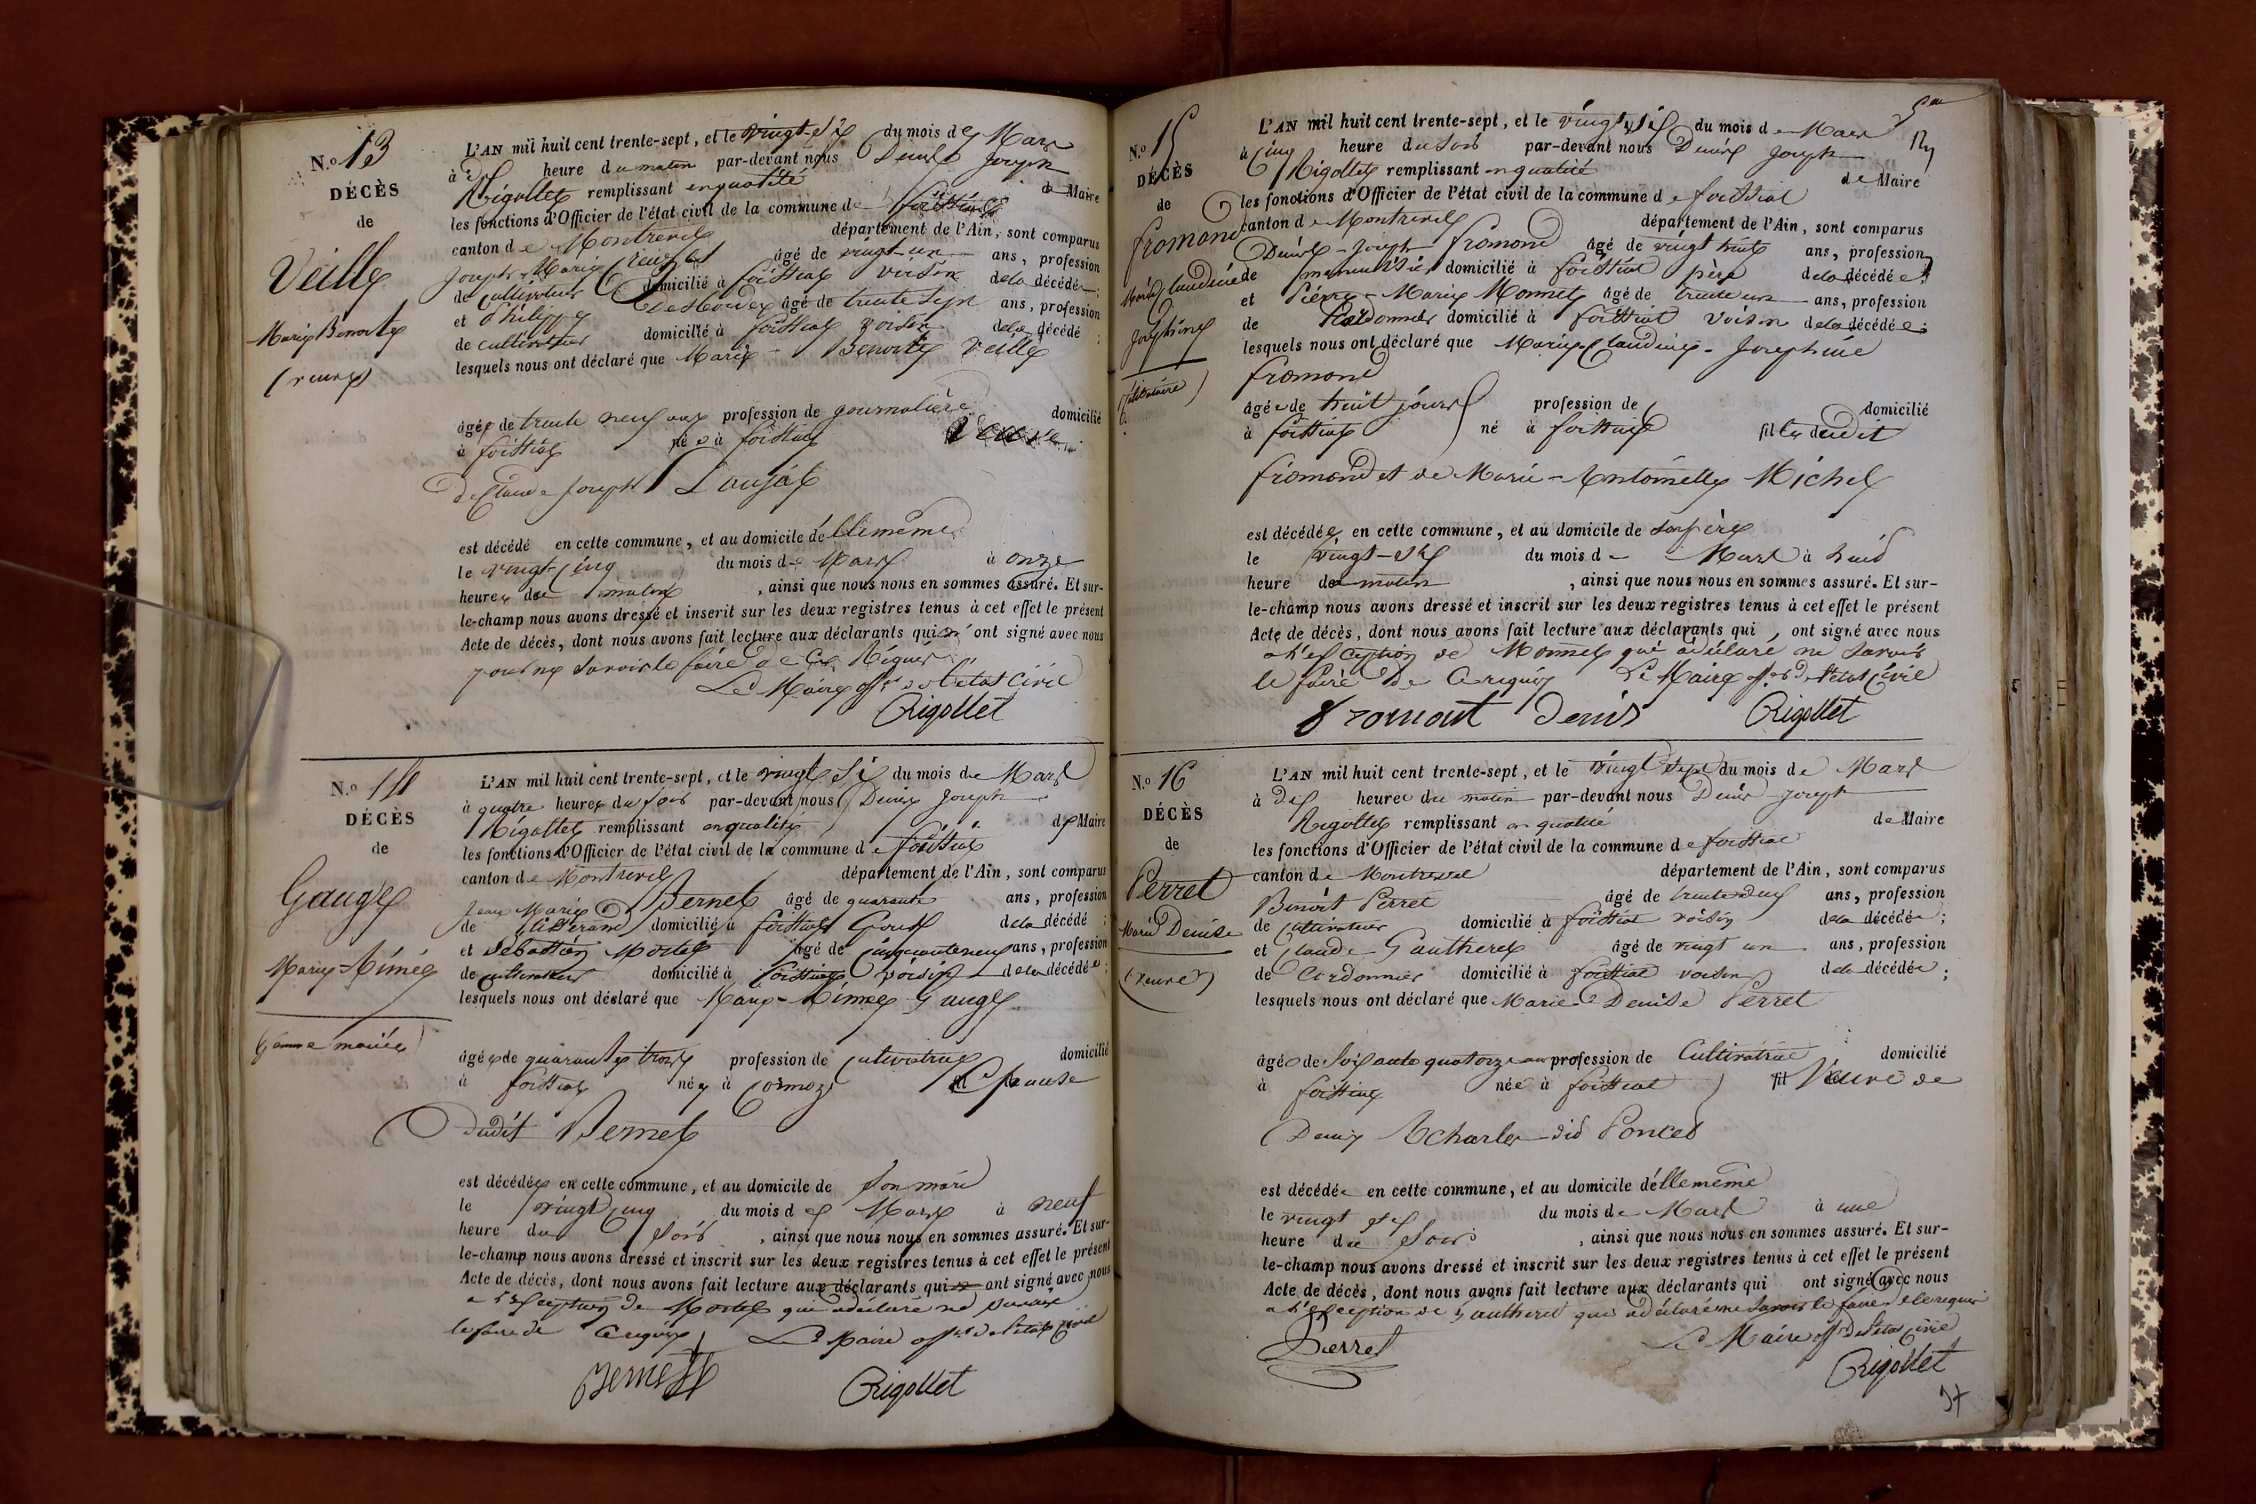 N.º 13
DÉCÈS
de
Veille
Marie Benoite
(veuve)
L'AN mil huit cent trente-sept, et le vingt-six du mois de Mars
à dix heure du matin par-devant nous Denis Joseph
Rigollet remplissant en qualité de Maire
les fonctions d'Officier de l'état civil de la commune de foissiat
canton de Montrevel département de l'Ain, sont comparus
Joseph Marie âgé de vingt-un ans, profession
de cultivateur domicilié à foissiat voisin de la décédée ;
et Philippe âgé de trente sept ans, profession
de cultivateur domicilié à foissiat voisin de la décédé ;
lesquels nous ont déclaré que Marie - Benoite Veille
âgée de trente neuf ans profession de journalière domicilié
à foissiat née à foissiat veuve
de Claude Joseph Laujat
est décédé en cette commune, et au domicile d'elle même
le vingt-cinq du mois de Mars à onze
heures du matin, ainsi que nous nous en sommes assuré. Et sur-
le-champ nous avons dressé et inscrit sur les deux registres tenus à cet effet le présent
Acte de décès, dont nous avons fait lecture aux déclarants qui n'ont signé avec nous
pour ne savoir le faire de ce Requis
Le Maire off. de l'état civil
Rigollet
N.º 14
DÉCÈS
de
Gauge
Marie-Aimée
(femme mariée)
L'AN mil huit cent trente-sept, et le vingt six du mois de Mars
à quatre heures du soir par-devant nous Denis Joseph
Rigollet remplissant en qualité de Maire
les fonctions d'Officier de l'état civil de la commune de foissiat
canton de Montrevel département de l'Ain, sont comparus
Jean Marie Bernet âgé de quarante ans, profession
de domicilié à foissiat de la décédé ;
et Sébastien Mortel âgé de cinquante neuf ans, profession
de cultivateur domicilié à foissiat voisin de la décédée ;
lesquels nous ont déclaré que Marie - Aimée Gauge
âgée de quarante trois profession de cultivatrice domicilié
à foissiat née à Cormoz épouse
dudit Bernet
est décédée en cette commune, et au domicile de son mari
le vingt cinq du mois de Mars à neuf
heure du soir, ainsi que nous nous en sommes assuré. Et sur-
le-champ nous avons dressé et inscrit sur les deux registres tenus à cet effet le présent
Acte de décès, dont nous avons fait lecture aux déclarants qui ont signé avec nous
a l'exception de Mortel qui a déclaré ne savoir
le faire de ce requis Le Maire off. de l'état civil
Bernet
Rigollet
N.º 15
DÉCÈS
de
Fromond
Marie Claudine
Joséphine
(célibataire)
L'AN mil huit cent trente-sept, et le vingt six du mois de Mars
à cinq heure du soir par-devant nous Denis Joseph
Rigollet remplissant en qualité de Maire
les fonctions d'Officier de l'état civil de la commune de foissiat
canton de Montrevel département de l'Ain, sont comparus
Denis - Joseph Fromond âgé de vingt huit ans, profession
de menuisier domicilié à foissiat père de la décédée ;
et Pierre - Marie Monnet âgé de trente un ans, profession
de Cordonnier domicilié à foissiat voisin de la décédée ;
lesquels nous ont déclaré que Marie Claudine - Josephine
fromond
âgée de huit jours profession de domicilié
à foissiat né à foissiat fille dudit
fromond et de Marie - Antoinette Michel
est décédée en cette commune, et au domicile de son père
le vingt-six du mois de Mars à huit
heure du matin, ainsi que nous nous en sommes assuré. Et sur-
le-champ nous avons dressé et inscrit sur les deux registres tenus à cet effet le présent
Acte de décès, dont nous avons fait lecture aux déclarants qui ont signé avec nous
a l'exception de Monnet qui a déclaré ne savoir
le faire de ce requis Le Maire off. de l'état civil
fromont denis Rigollet
N.º 16
DÉCÈS
de
Perret
Marie Denise
(veuve)
L'AN mil huit cent trente-sept, et le vingt sept du mois de Mars
à dix heure du matin par-devant nous Denis Joseph
Rigollet remplissant en qualité de Maire
les fonctions d'Officier de l'état civil de la commune de foissiat
canton de Montrevel département de l'Ain, sont comparus
Benoit Perret âgé de trente deux ans, profession
de cultivateur domicilié à foissiat voisin de la décédée ;
et Claude Gautheret âgé de vingt un ans, profession
de Cordonnier domicilié à foissiat voisin de la décédée ;
lesquels nous ont déclaré que Marie - Denise Perret
âgée de soixante quatorze ans profession de Cultivatrice domicilié
à foissiat née à foissiat fil Veuve de
Denis dit Poncet
est décédée en cette commune, et au domicile d'elle même
le vingt six du mois de Mars à une
heure du soir, ainsi que nous nous en sommes assuré. Et sur-
le-champ nous avons dressé et inscrit sur les deux registres tenus à cet effet le présent
Acte de décès, dont nous avons fait lecture aux déclarants qui ont signé avec nous
a l'exception de Gautheret qui a déclaré ne savoir le faire de ce requis
Le Maire off. de l'état civil
Perret
Rigollet
37